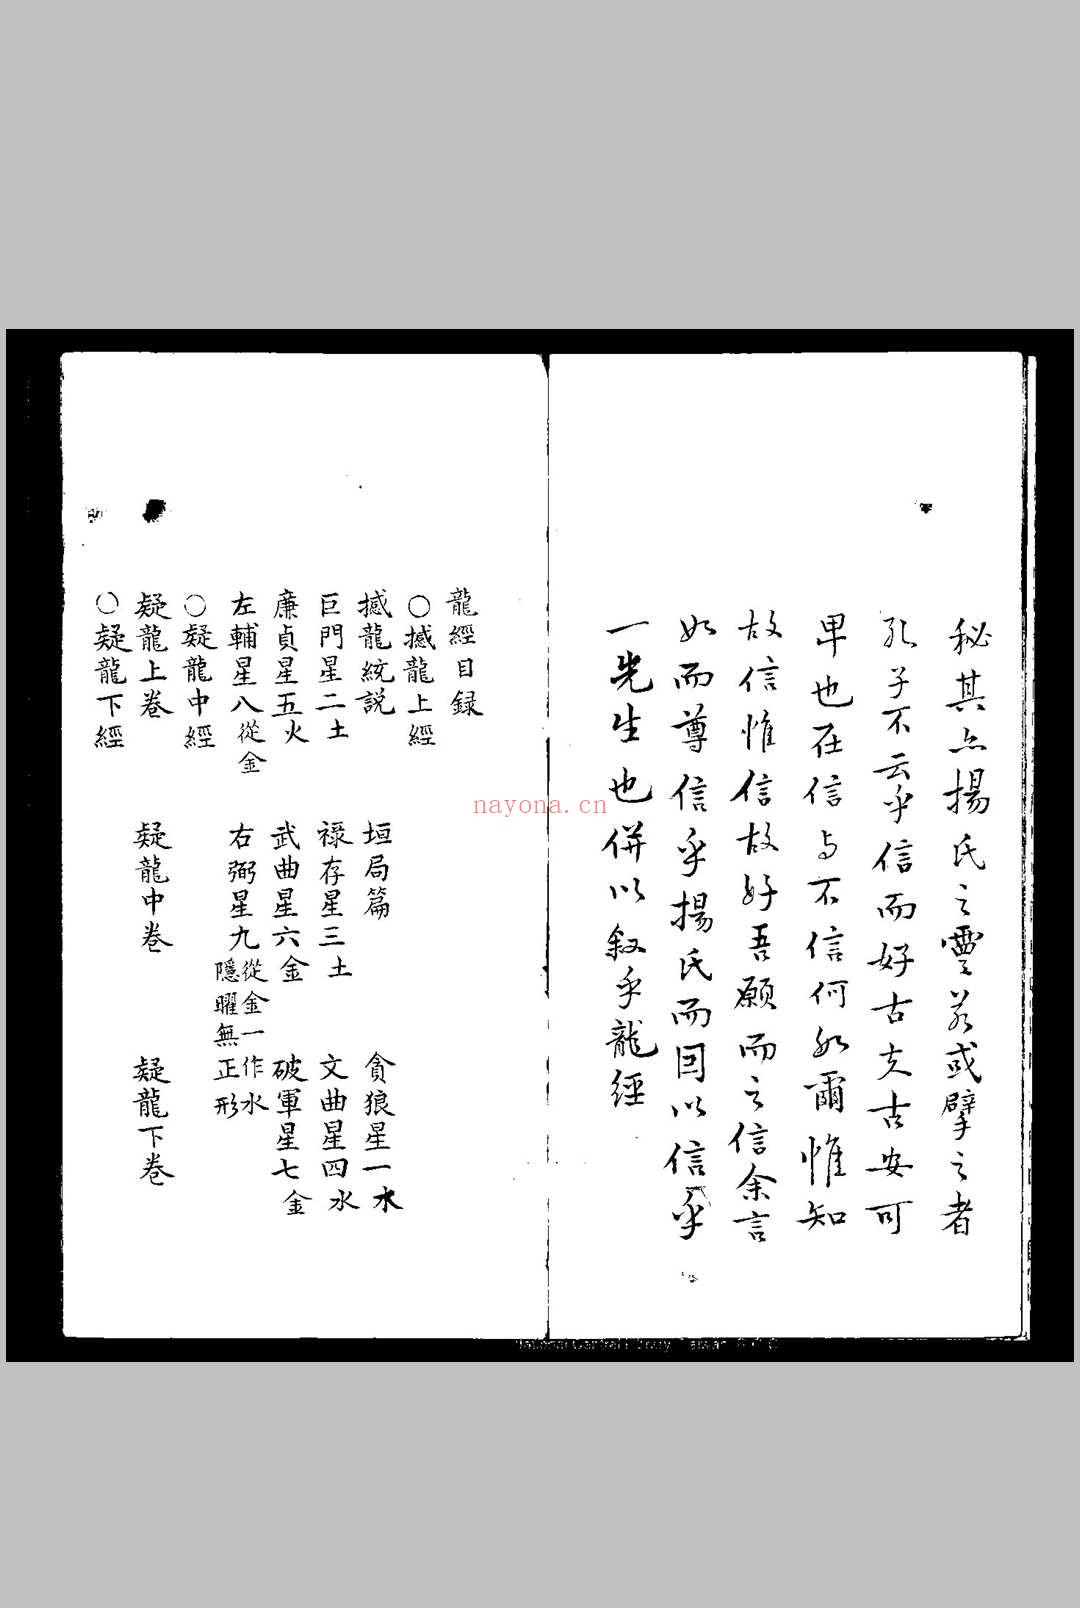 秘其亦揚氏之靈爽或擘之者
孔子不云乎信而好古夫古安可
卑也在信与不信何如爾惟知
故信惟信故好吾願而之信余言
如而尊信乎揚氏而因以信乎
一先生也併以叙乎龍經
龍經目録
○撼龍上經
撼龍統説 垣局篇 貪狼星一木
巨門星二土 禄存星三土 文曲星四水
廉貞星五火 武曲星六金 破軍星七金
左輔星八從金 右弼星九從金一作水隱曜無正形
○疑龍中經
疑龍上卷 疑龍中卷 疑龍下卷
○疑龍下經
nayona.cn